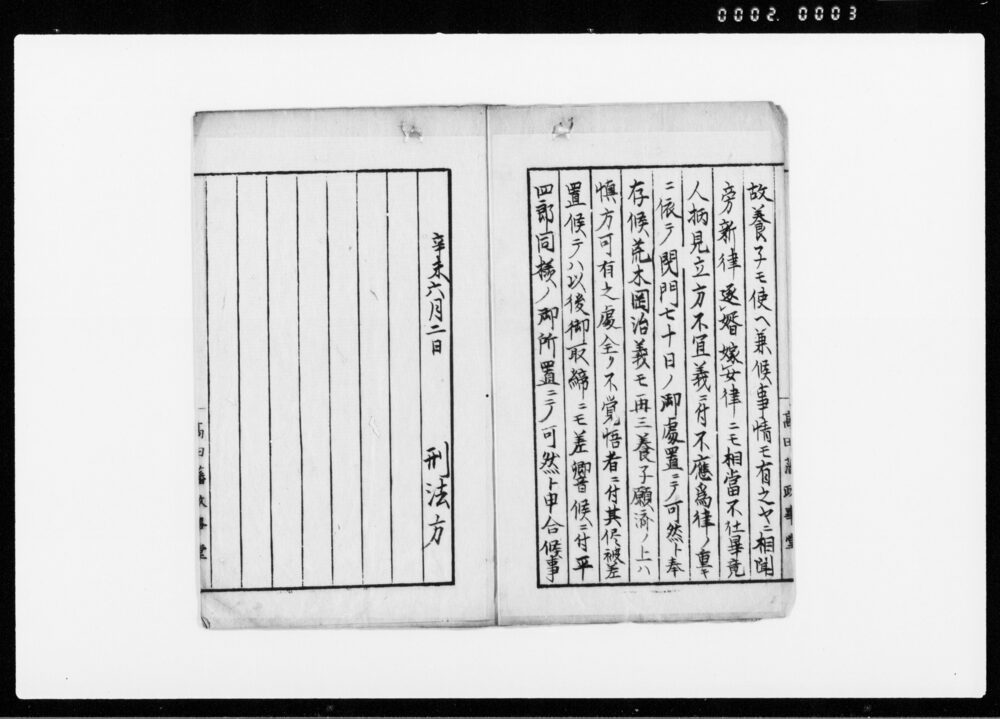 0002. 0003
故養子モ使ヘ兼候事情モ有之ヤニ相聞
旁新律逐婚嫁女律ニモ相當不仕畢竟
人柄見立方不宜義ニ付不應為律ノ重キ
ニ依テ閉門七十日ノ御處置ニテ可然ト奉
存候荒木岡治義モ再三養子願済ノ上ハ
慎方可有之處全ク不覚悟者ニ付其侭被差
置候テハ以後御取締ニモ差響候ニ付平
四郎同様ノ御所置ニテ可然ト申合候事
高田藩政事堂
辛未六月二日
刑法方
高田藩政事堂